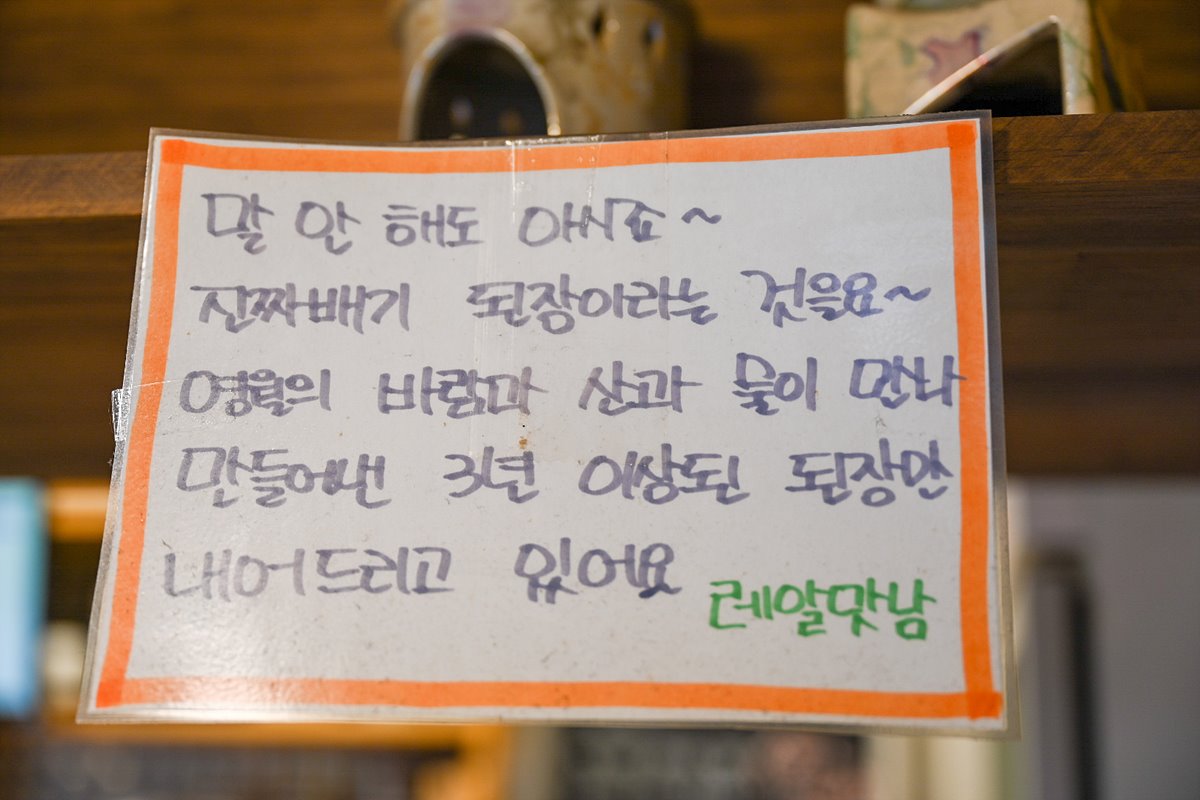 말 안 해도 아시죠~
진짜배기 된장이라는 것을요~
영월의 바람과 산과 물이 만나
만들어낸 3년 이상된 된장만
내어드리고 있어요
레알맛남